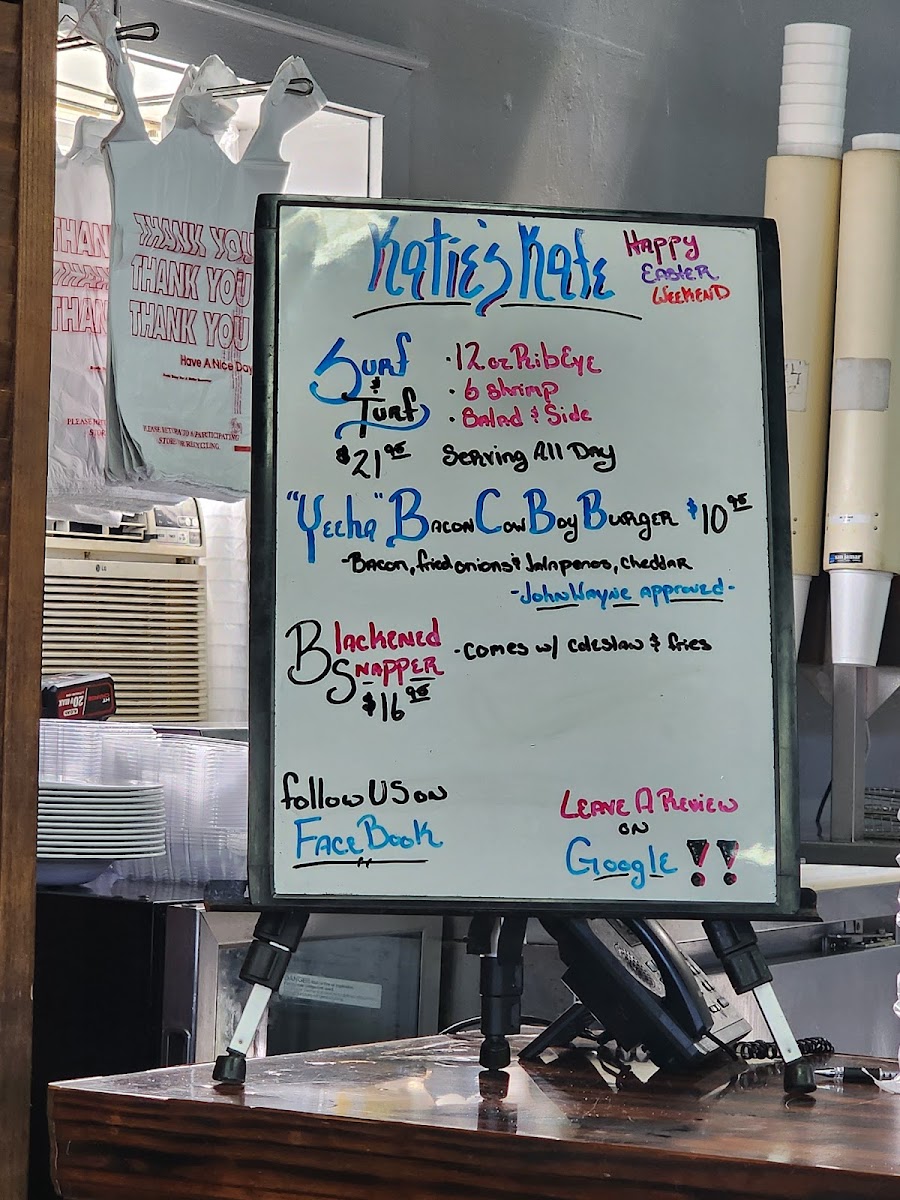 Katie's Kafe
Happy
Easter
Weekend
Surf
&
Turf
$21.95
· 12 oz RibEye
· 6 Shrimp
· Salad & Side
Serving All Day
"Yeeha" Bacon CowBoy Burger $10.95
-Bacon, fried onions & Jalapenos, cheddar
-John Wayne approved-
Blackened
Snapper
$16.95
-Comes w/ coleslaw & fries
follow US on
FaceBook
Leave A Review
on
Google !!
THANK YOU
THANK YOU
THANK YOU
Have A Nice Day
PLEASE RETURN TO A PARTICIPATING
STORE FOR RECYCLING
THAN
THAN
THAN
LG
20V MAX